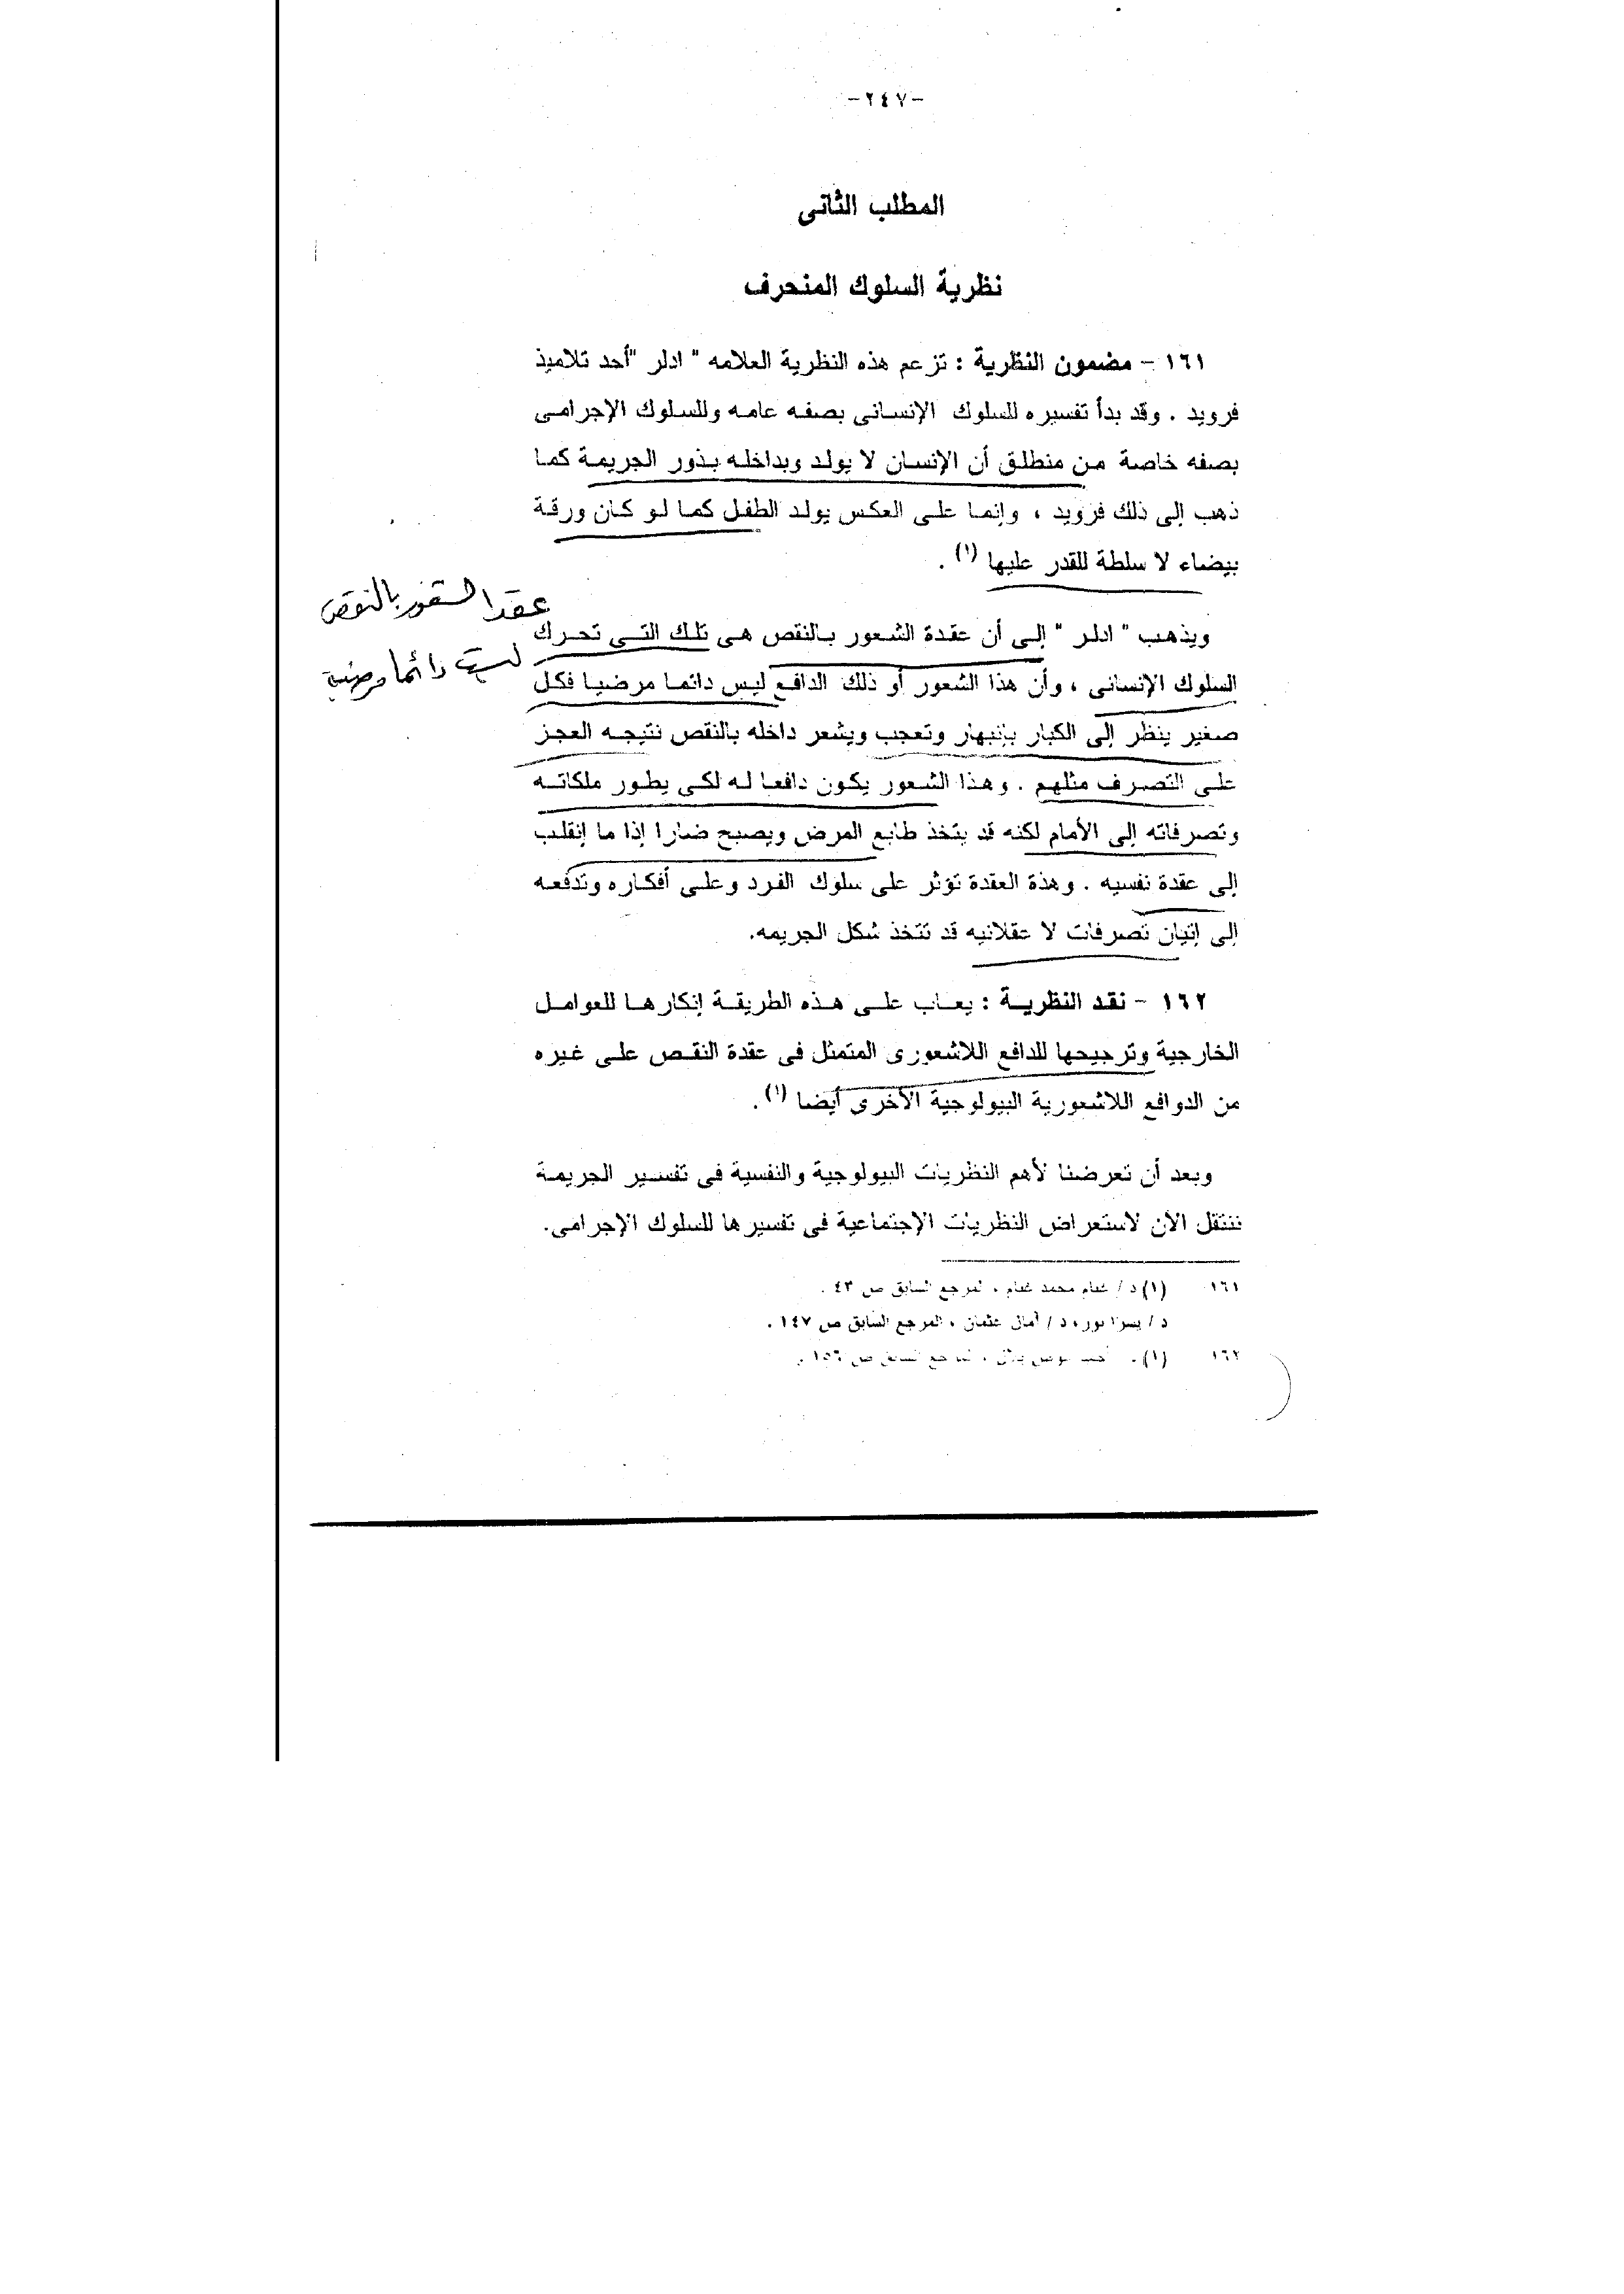 -٢٤٧-
المطلب الثانى
نظرية السلوك المنحرف
١٦١ - مضمون النظرية : تزعم هذه النظرية العلامه " ادلر "أحد تلاميذ
فرويد . وقد بدأ تفسيره للسلوك الإنسانى بصفه عامه وللسلوك الإجرامى
بصفه خاصة من منطلق أن الإنسان لا يولد وبداخله بذور الجريمة كما
ذهب إلى ذلك فرويد ، وإنما على العكس يولد الطفل كما لو كان ورقة
بيضاء لا سلطة للقدر عليها (١) .
ويذهب " ادلر " إلى أن عقدة الشعور بالنقص هى تلك التى تحرك
السلوك الإنسانى ، وأن هذا الشعور أو ذلك الدافع ليس دائما مرضيا فكل
صغير ينظر إلى الكبار بإنبهار وتعجب ويشعر داخله بالنقص نتيجه العجز
على التصرف مثلهم . وهذا الشعور يكون دافعا له لكى يطور ملكاته
وتصرفاته إلى الأمام لكنه قد يتخذ طابع المرض ويصبح ضارا إذا ما إنقلب
إلى عقدة نفسيه . وهذة العقدة تؤثر على سلوك الفرد وعلى أفكاره وتدفعه
إلى إتيان تصرفات لا عقلانيه قد تتخذ شكل الجريمه.
١٦٢ - نقد النظرية : يعاب على هذه الطريقة إنكارها للعوامل
الخارجية وترجيحها للدافع اللاشعورى المتمثل فى عقدة النقص على غيره
من الدوافع اللاشعورية البيولوجية الأخرى أيضا (١) .
وبعد أن تعرضنا لأهم النظريات البيولوجية والنفسية فى تفسير الجريمة
ننتقل الآن لاستعراض النظريات الإجتماعية فى تفسيرها للسلوك الإجرامى.
١٦١ (١) د / غنام محمد غنام ، المرجع السابق ص ٤٣ .
د / يسرا نور، د / أمال عثمان ، المرجع السابق ص ١٤٧ .
١٦٢ (١) . المرجع السابق ص ١٥٦ .
بالنقص
ليست دائما مرضية